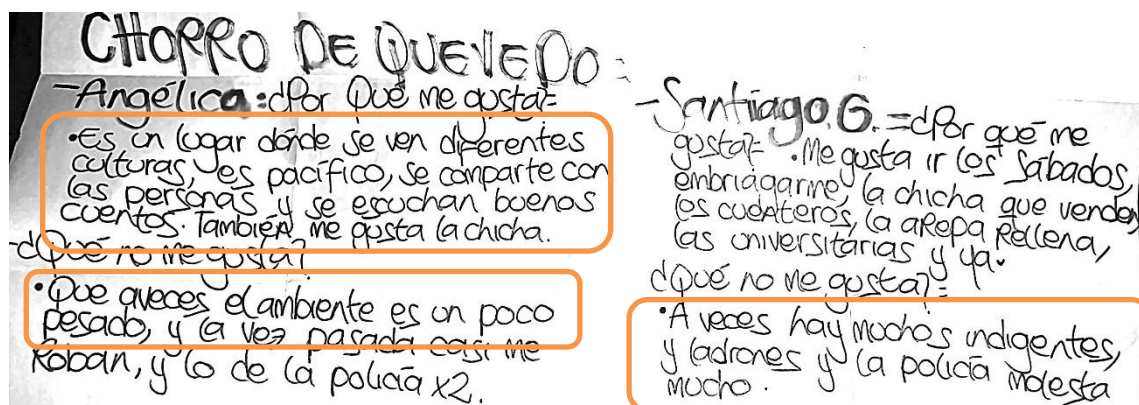 CHORRO DE QUEVEDO:
-Angélica: ¿Por Qué me gusta?=
•Es un lugar dónde se ven diferentes
culturas, es pacífico, se comparte con
las personas y se escuchan buenos
cuentos. También me gusta la chicha.
-¿Qué no me gusta?
•Que aveces el ambiente es un poco
pesado, y la vez pasada casi me
Roban, y lo de la policía x2.
-Santiago.G.=¿Por qué me
gusta?= •Me gusta ir los sábados,
embriagarme, la chicha que venden,
los cuenteros, la aRepa Rellena,
las universitarias y ya.
¿Qué no me gusta?=
•A veces hay muchos indigentes,
y ladrones y la policía molesta
mucho.